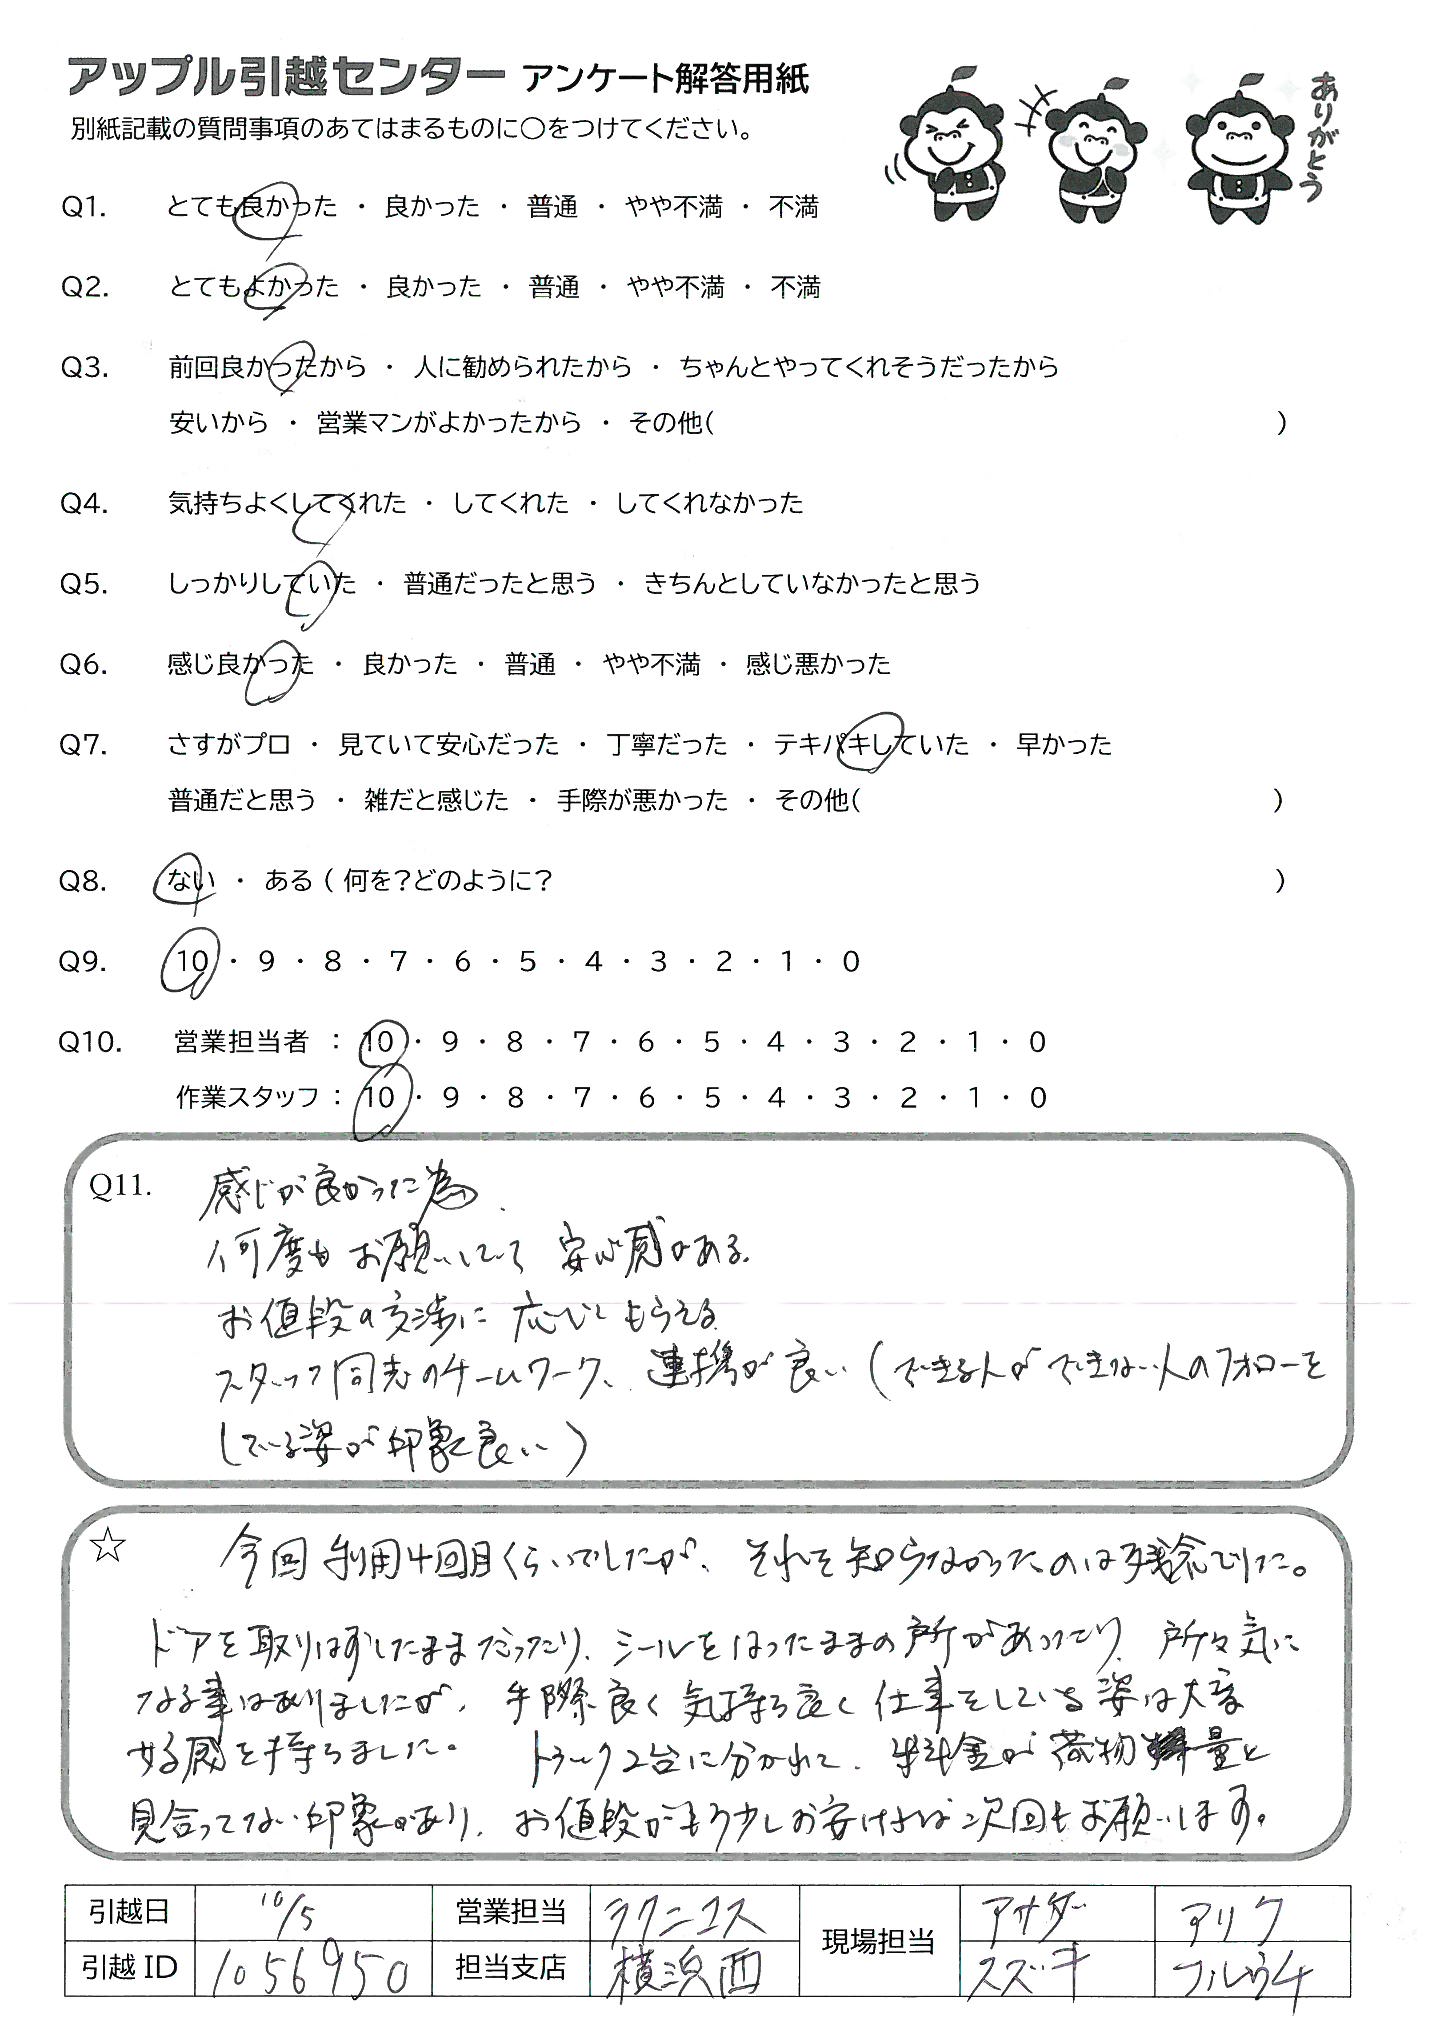 アップル引越センター アンケート解答用紙
別紙記載の質問事項のあてはまるものに〇をつけてください。
ありがとう
Q1. とても良かった ・ 良かった ・ 普通 ・ やや不満 ・ 不満
Q2. とてもよかった ・ 良かった ・ 普通 ・ やや不満 ・ 不満
Q3. 前回良かったから ・ 人に勧められたから ・ ちゃんとやってくれそうだったから
安いから ・ 営業マンがよかったから ・ その他( )
Q4. 気持ちよくしてくれた ・ してくれた ・ してくれなかった
Q5. しっかりしていた ・ 普通だったと思う ・ きちんとしていなかったと思う
Q6. 感じ良かった ・ 良かった ・ 普通 ・ やや不満 ・ 感じ悪かった
Q7. さすがプロ ・ 見ていて安心だった ・ 丁寧だった ・ テキパキしていた ・ 早かった
普通だと思う ・ 雑だと感じた ・ 手際が悪かった ・ その他( )
Q8. ない ・ ある ( 何を？どのように？ )
Q9. 10 ・ 9 ・ 8 ・ 7 ・ 6 ・ 5 ・ 4 ・ 3 ・ 2 ・ 1 ・ 0
Q10. 営業担当者 ： 10 ・ 9 ・ 8 ・ 7 ・ 6 ・ 5 ・ 4 ・ 3 ・ 2 ・ 1 ・ 0
作業スタッフ ： 10 ・ 9 ・ 8 ・ 7 ・ 6 ・ 5 ・ 4 ・ 3 ・ 2 ・ 1 ・ 0
Q11. 感じが良かった為、
何度もお願いしていて 安心感がある。
お値段の交渉に 応じてもらえる
スタッフ同志のチームワーク、連携が良い (できる人ができない人のフォローを
している姿が印象良い)
☆ 今回利用4回目くらいでしたが、それを知らなかったのは残念でした。
ドアを取りはずしたままだったり、シールをはったままの所があったり、所々気に
なる事はありましたが、手際良く気持ち良く仕事をしている姿は大変
好感を持ちました。 トラック2台に分かれて、料金が荷物量と
見合ってない印象があり、お値段がもう少しお安ければ次回もお願いします。
引越日 10/5 営業担当 ラクニコス 現場担当 アサダ アリク
引越ID 1056950 担当支店 横浜西 スズキ フルウチ